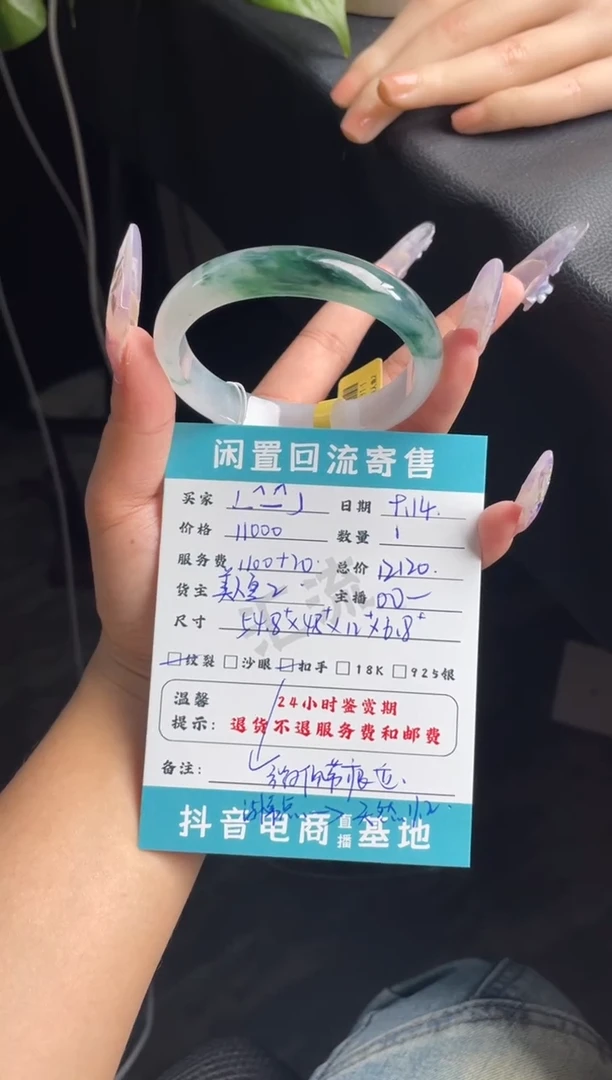 闲置回流寄售
买家 日期 9.14.
价格 11000 数量 1
服务费 1100+20. 总价 12120.
货主 美人鱼2 主播
汇流
尺寸 54.8⁺×48⁺×12⁺×6.8⁺
纹裂 沙眼 扣手 18K 925银
温馨提示: 24小时鉴赏期
退货不退服务费和邮费
备注:
抖音电商直播基地